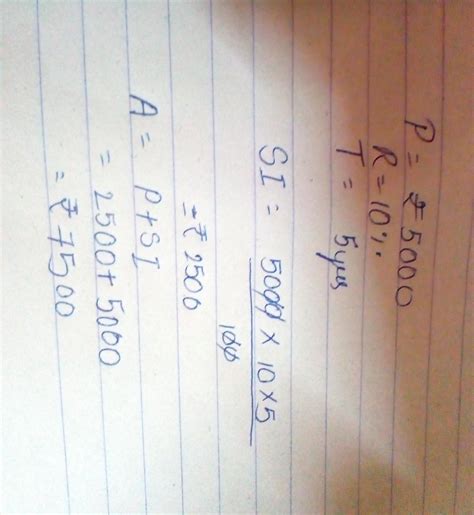 P = ₹ 5000
R = 10%.
T = 5 yrs
SI = 5000 × 10 × 5
100
= ₹ 2500
A = P + SI
= 2500 + 5000
= ₹ 7500